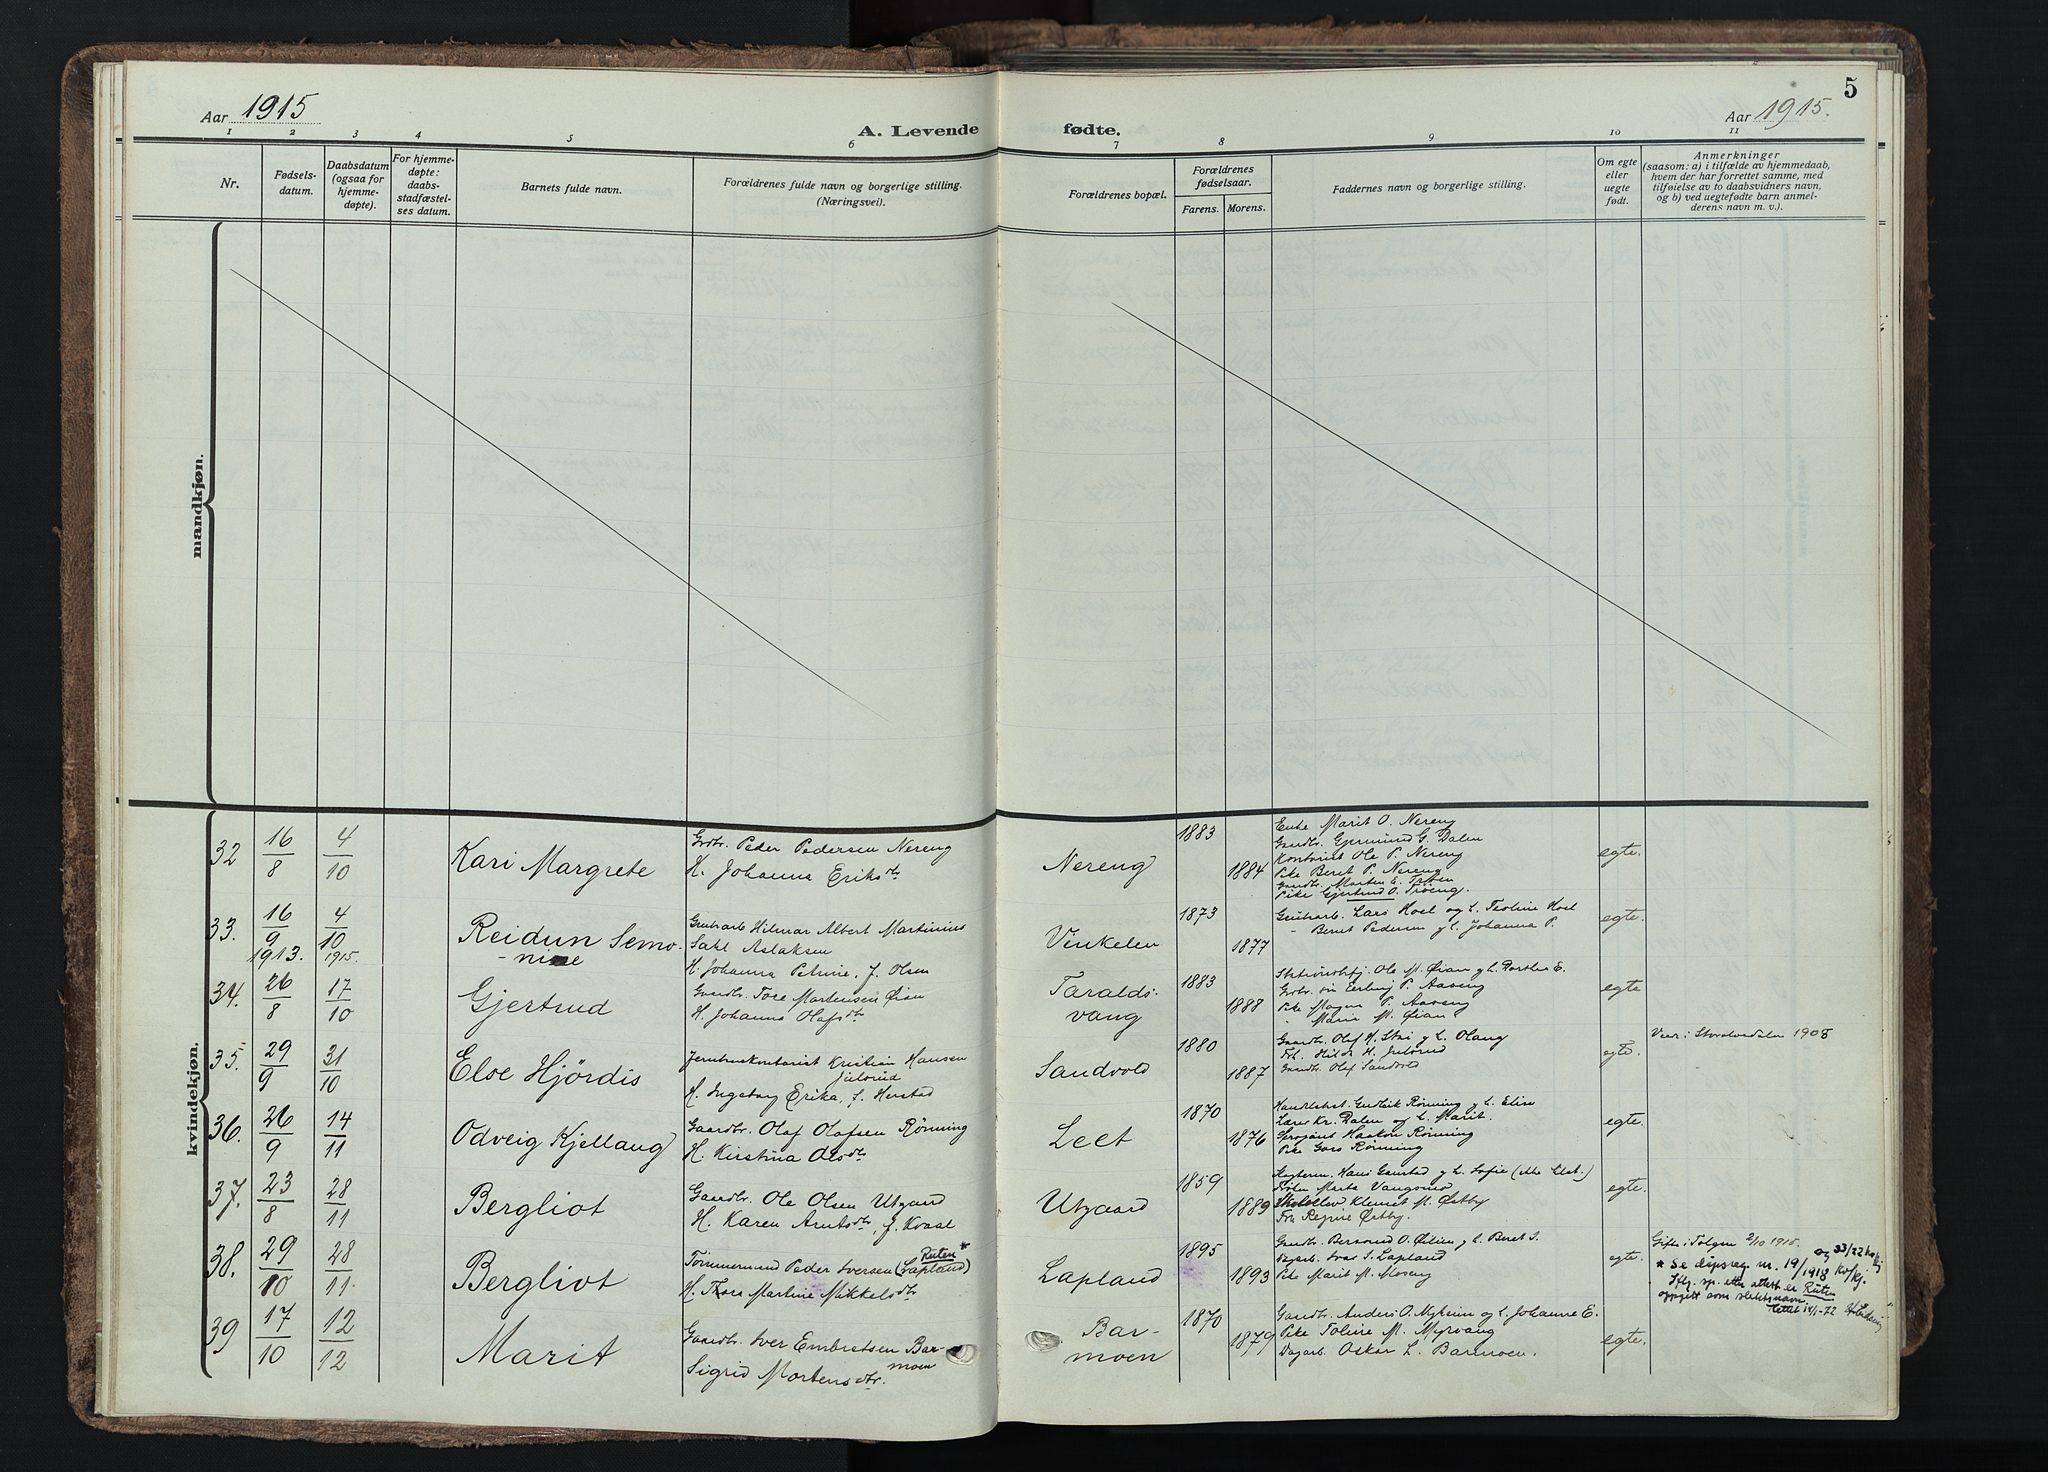 5
Aar 1915
Aar 1915.
A. Levende fødte.
1 2 3 4 5 6 7 8 9 10 11
Nr.
Fødsels-
datum.
Daabsdatum
(ogsaa for
hjemme-
døpte).
For hjemme-
døpte:
daabs-
stadfæstel-
ses datum.
Barnets fulde navn.
Forældrenes fulde navn og borgerlige stilling.
(Næringsvei).
Forældrenes bopæl.
Forældrenes
fødselsaar.
Farens. Morens.
Faddernes navn og borgerlige stilling.
Om egte
eller
uegte
født.
Anmerkninger
(saasom: a) i tilfælde av hjemmedaab,
hvem der har forrettet samme, med
tilføielse av to daabsvidners navn,
og b) ved uegtefødte barn anmel-
derens navn m. v.).
mandkjøn.
kvindekjøn.
32 16/8 4/10 Kari Margrete
Grdbr. Peder Pedersen Nereng
H. Johanna Eriksdtr
Nereng 1883 1884
Enke Marit O. Nereng
Gaardbr. Gjermund G. Dalen
Kontorist Ole P. Nereng
Pike Beret P. Nereng
Gaardbr. Morten E.
Pike Gjertrud O. Trøeng.
egte.
33. 16/9 1913. 4/10 1915. Reidun Semo-
nine
Grubearb Hilmar Albert Martinius
Dahl Aslaksen
H. Johanna Petrine, f. Olsen
Vinkelen 1873 1877
Grubearb. Lars Hoel og h. Tealine Hoel
" Bernt Pedersen og h. Johanna P.
egte.
34. 26/8 17/10 Gjertrud
Gaardbr. Tore Martensen Øian
H. Johanna Olafsdtr
Taralds-
vang 1883 1888
Ole M. Øian og h. Dorthea E.
Grdbr. søn Erling P. Aaseng
Pike Magna P. Aaseng
" Marie M. Øian
egte
35. 29/9 31/10 Else Hjørdis
Jernbanekontorist Kristian Hansen
Julsrud
H. Ingeborg Erika, f. Herstad
Sandvold 1880 1887
Gaardbr. Olaf H. Stai og h. Olaug
Frk. Hilda H. Julsrud
Gaardbr. Olaf Sandvold
egte.
Viet i Storelvedalen 1908
36. 26/9 14/11 Odveig Kjellaug
Gaardbr. Olaf Olafsen Rønning
H. Kirstina Olsdtr
Leet 1870 1876
Handelsbest. Gudleik Rønning og h. Elise
Lærer Kr. Dalen og h. Marit.
Sersjant Haakon Rønning
Pike Goro Rønning
egte.
37. 23/8 28/11 Bergliot
Gaardbr. Ole Olsen Utgaard
H. Karen Arntsdtr, f. Kvaal
Utgaard 1859 1889
Hans Ganstad og h. Sofie
Frøken Marta Vangsmo
Klemet M. Østby
Fru Regine Østby.
egte.
38. 29/10 28/11 Bergliot
Tømmermand Peder Iversen (Lapland) Ruten *
H. Thora Martine Mikkelsdtr
Lapland 1895 1893
Gaardbr. Bersvend O. Øilien og h. Beret S.
Dagarb. Ivar S. Lapland
Pike Marit M. Moseng
egte.
Gifte i Tolgen 2/10 1915.
* Se dåpsreg nr. 19/1918 kv/kj. og 33/22 kv/kj
Iflg. sp. etter attest er Ruten
oppgitt som slektsnavn
39 17/10 12/12 Marit
Gaardbr. Iver Embretsen Bar-
moen
Sigrid Mortensdtr.
Bar-
moen 1870 1879
Gaardbr. Anders O. Nyheim og h. Johanne E.
Pike Toline M. Myrvang
Dagarb. Oskar L. Barmoen.
egte.